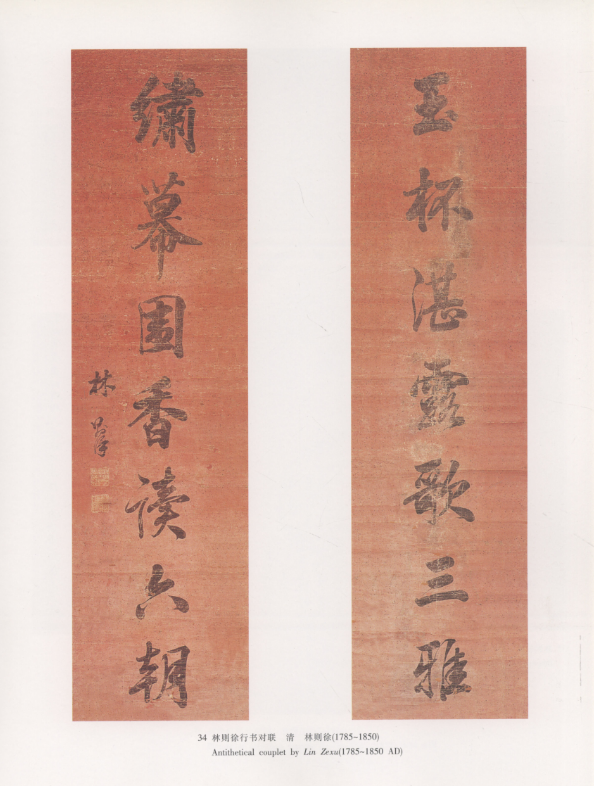 玉杯湛露歌三雅
繡幕圍香讀六朝
林
34 林则徐行书对联 清 林则徐(1785-1850)
Antithetical couplet by Lin Zexu(1785~1850 AD)